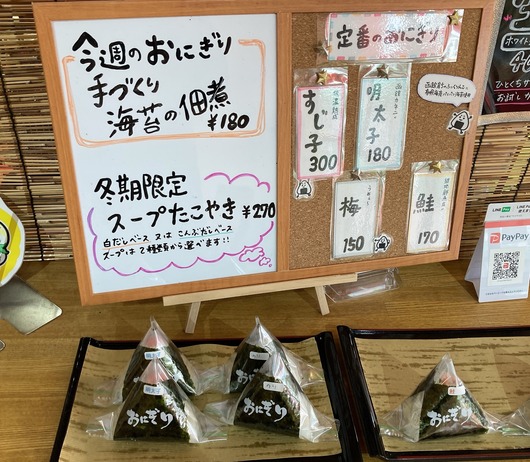 今週のおにぎり
手づくり
海苔の佃煮
¥180
冬期限定
スープたこやき ¥270
白だしベース 又は こんぶだしベース
スープは2種類から選べます!!
定番のおにぎり
すじ子
300
明太子
180
梅
150
鮭
170
ホワイト
ひとくち
お試し
LINE Pay
PayPay
おにぎり
おにぎり
おにぎり